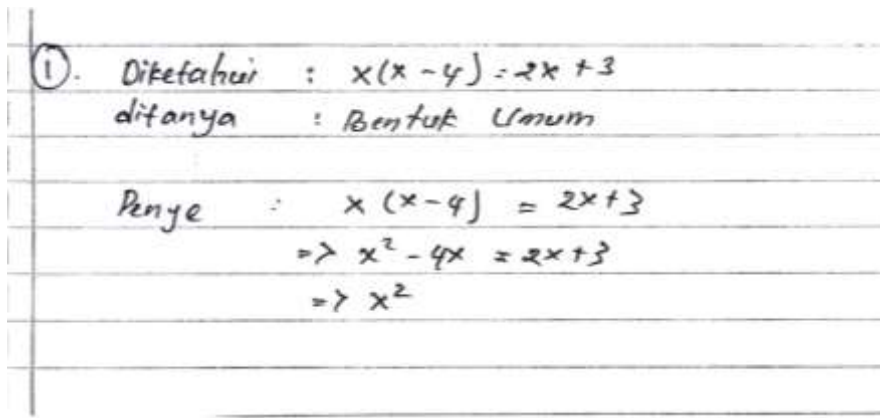 ①. Diketahui : x(x-4) = 2x +3
ditanya : Bentuk Umum
Penye : x (x-4) = 2x+3
=> x² - 4x = 2x+3
=> x²